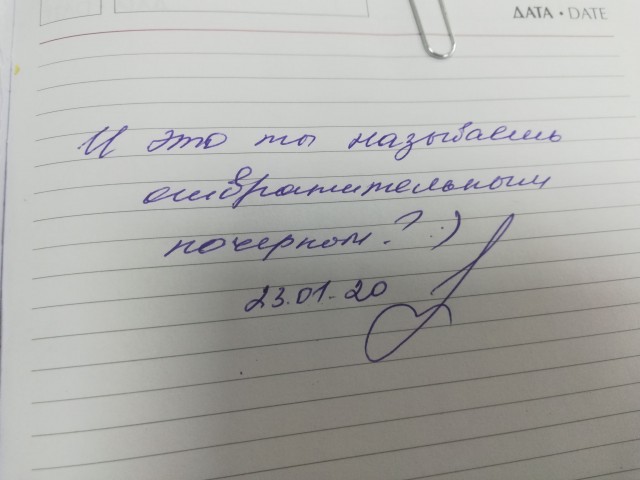 ДАТА • DATE
И это ты называешь
отвратительным
почерком? :)
23.01.20